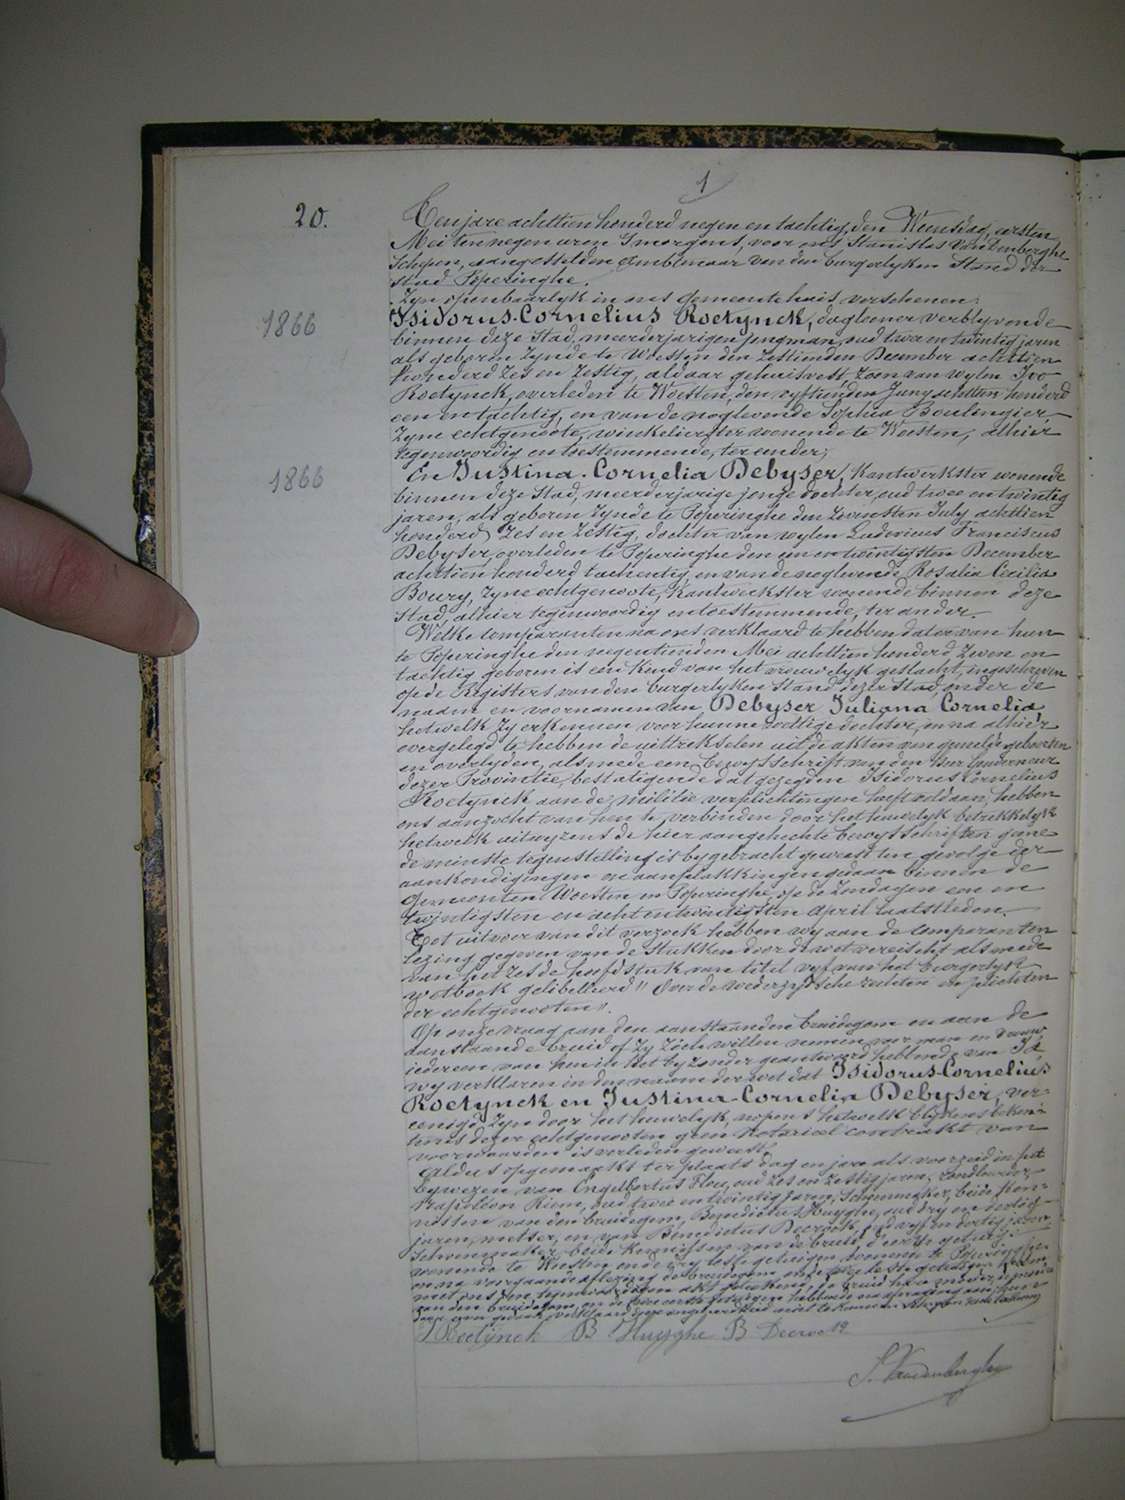 1
20.
Ten jare achttien honderd negen en tachtig, den Woensdag, eersten
Mei ten negen uren 's morgens, voor ons Stanislas Vandenberghe
Schepen, aangestelden Ambtenaar van den burgerlyken Stand der
stad Poperinghe.
Zyn openbaarlyk in ons gemeentehuis verschenen:
1866
Isidorus-Cornelius Roetynck, daglooner verblyvende
binnen deze Stad, meerderjarigen jongman, oud twee en twintig jaren
als geboren zynde te Woesten den zestienden December achttien
honderd zes en zestig, aldaar gehuisvest zoon van wylen Ivo
Roetynck, overleden te Woesten, den vyftienden Juny achttien honderd
een en tachtig, en van de nogLevende Sophia Boulingier
zyne echtgenoote, winkelierster wonende te Woesten, alhier
tegenwoordig en toestemmende, ter eender;
1866
En Justina-Cornelia Debyser, Kantwerkster wonende
binnen deze Stad, meerderjarige jonge dochter, oud twee en twintig
jaren, als geboren zynde te Poperinghe den zevensten July achttien
honderd zes en zestig, dochter van wylen Ludovicus Franciscus
Debyser, overleden te Poperinghe den een en twintigsten December
achttien honderd tachentig, en van de noglevende Rosalia Cecilia
Boury, zyne echtgenoote, Kantwerkster wonende binnen deze
Stad, alhier tegenwoordig en toestemmende, ter ander.
Welke comparanten na ons verklaard te hebben dat er van hun
te Poperinghe den negentienden Mei achttien honderd zeven en
tachtig geboren is een kind van het vrouwelyk geslacht, ingeschreven
op de Registers van den burgerlyken Stand dezer Stad, onder de
naam en voornamen van Debyser Juliana Cornelia,
hetwelk zy erkennen voor hunne wettige dochter, en na alhier
overgelegd te hebben de uittrekselen uit de akten van gemelde geboorten
en overlyden, als mede een bewysschrift van den Heer Gouverneur
dezer Provintie, bestatigende dat gezegden Isidorus Cornelius
Roetynck aan de militie verplichtingen heeft voldaan, hebben
ons aanzocht van hen te verbinden door het huwelyk betrekkelyk
hetwelk uitwyzens de hier aangehechte bewysschriften geene
de minste tegenstelling is bygebracht geweest ten gevolge der
aankondigingen en aanplakkingen gedaan binnen de
Gemeenten Woesten en Poperinghe, op de Zondagen een en
twintigsten en acht en twintigsten April laatstleden.
Tot uitvoer van dit verzoek hebben wy aan de comparanten
lezing gegeven van de stukken door de wet vereischt als mede
van het zesde hoofdstuk van titel vyf van het burgerlyk
wetboek gelibelleerd " Over de wederzydsche rechten en plichten
der echtgenooten ".
Op onze vraag aan den aanstaanden bruidegom en aan de
aanstaande bruid of zy zich willen nemen voor man en vrouw
iedereen van hen in het byzonder geantwoord hebbende van Ja
wy verklaren in den naam der wet dat Isidorus-Cornelius
Roetynck en Justina-Cornelia Debyser, ver-
eenigd zyn door het huwelyk, nopens hetwelk blykens beken-
tenis dezer echtgenooten geen Notarieel contrakt van
voorwaarden is verleden geweest.
Aldus opgemaakt ter plaats dag en jaar als voorzeid in het
bywezen van Engelbertus Flou, oud zes en zestig jaren, landbouwer,
Napoleon Riem, oud twee en twintig jaren, Schoenmaker, beide ken-
nissen van den bruidegom, Benedictus Huyghe, oud dry en dertig
jaren, metser, en van Benedictus Decrock, oud vyf en dertig jaren,
Schoenmaker, beide kennissen van de bruid, de eerste getuige
wonende te Woesten en de dry leste getuigen wonende te Poperinghe
en na voorgaande aflezing de bruidegom en de twee leste getuigen hebben
met ons den tegenwoordigen akt geteekend, de bruid hare moeder, de moeder
van den bruidegom en de twee eerste getuigen hebbende
I Roetynck B Huyghe B Decrock
S. Vandenberghe